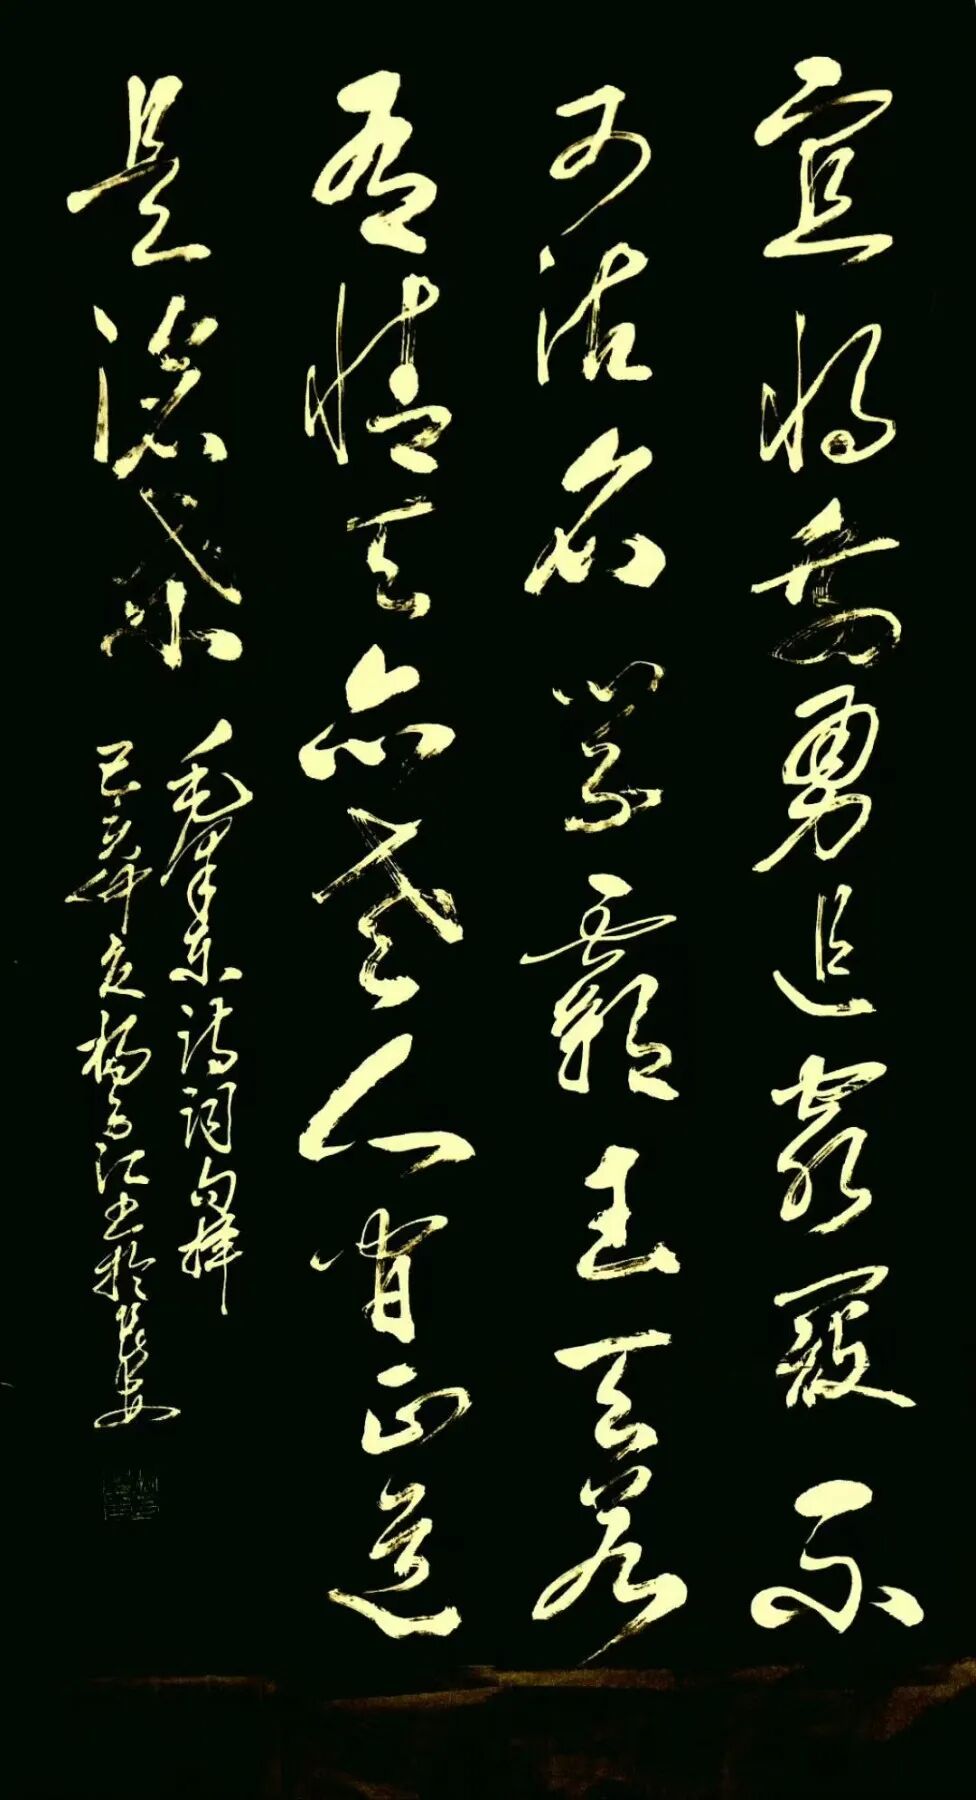 宜将剩勇追穷寇不
可沽名学霸王天若
有情天亦老人间正道
是沧桑
毛泽东诗词句择
己亥年 杨 江书於长安